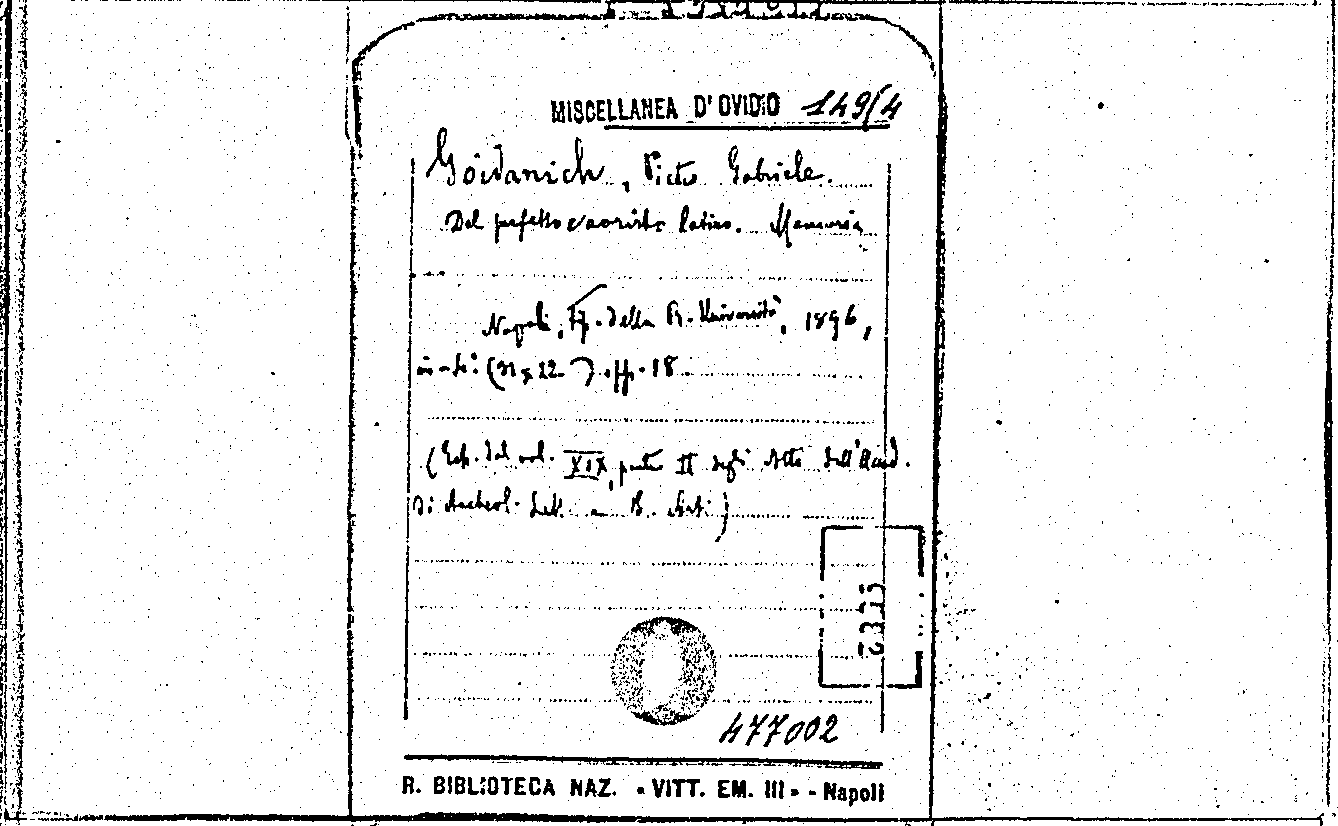 MISCELLANEA D'OVIDIO 149/4
Goidanich, Pietro Gabriele.
Del perfetto e aoristo latino. Memoria
Napoli, Tip. della R. Università, 1896,
in-4º. pp. 18
(Estr. dal vol. XIX, parte II degli Atti dell'Accad.
di Archeol. Lett. e B. Arti)
477002
R. BIBLIOTECA NAZ. « VITT. EM. III » - Napoli